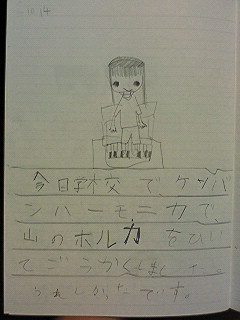 10.14
今日学校で、ケンバ
ンハーモニカで、
山のポルカをひい
てごうかくしました。
うれしかったです。